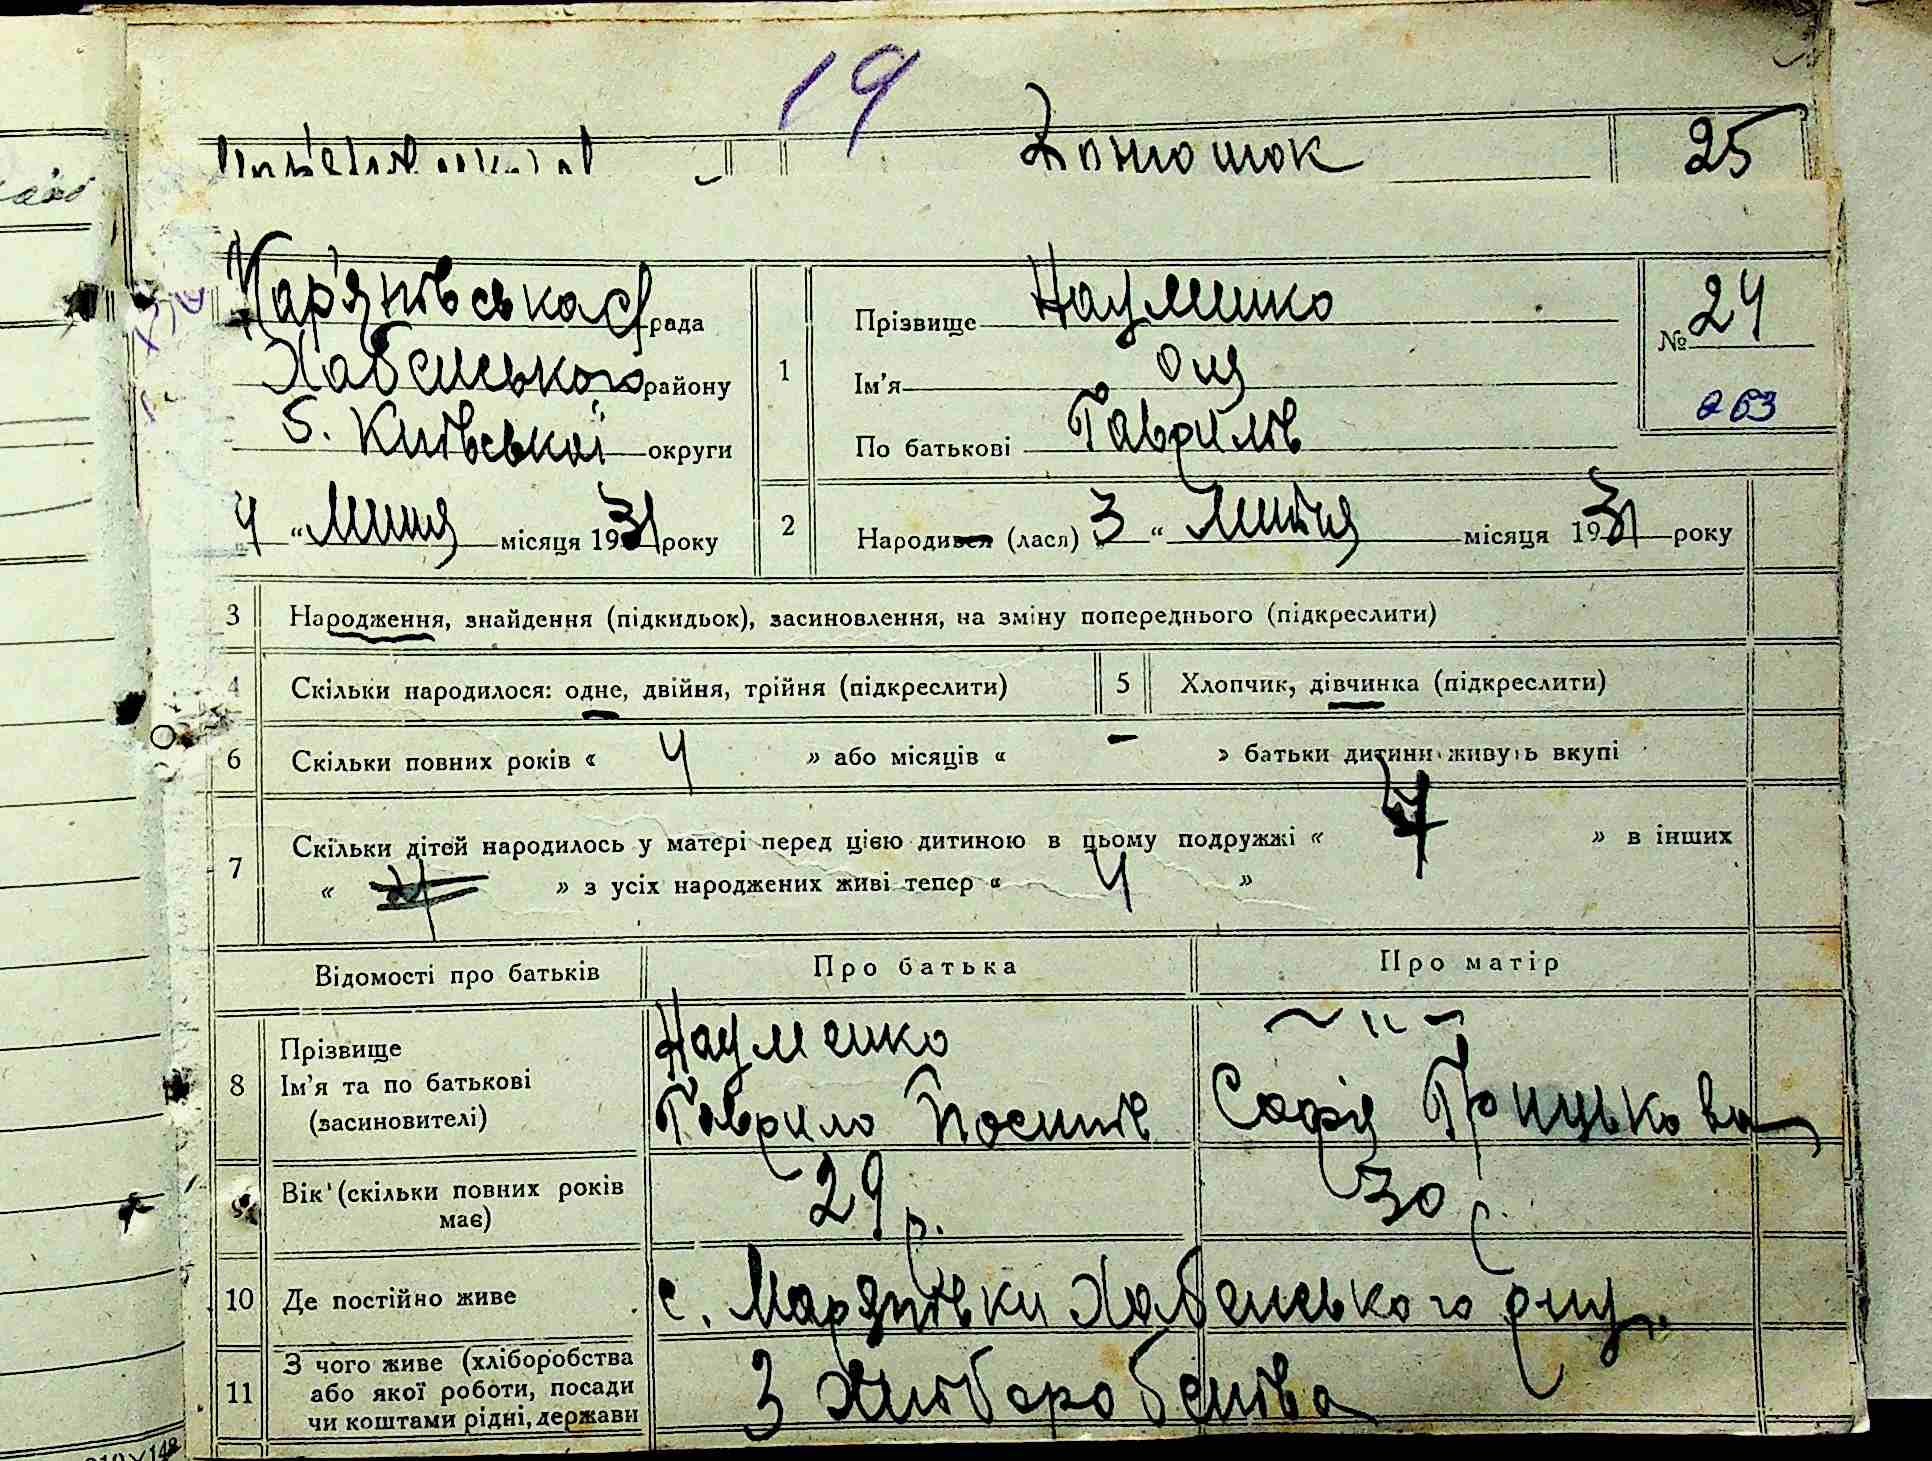 19
Донюшок
25
Мар'янівська с/рада
Хабенського району
б. Київської округи
4 “ Липня місяця 1931 року
1
Прізвище Науменко
Ім'я Оля
По батькові Гаврилів
№ 24
263
2
Народився (лась) 3 “ Липня місяця 1931 року
3 Народження, знайдення (підкидьок), засиновлення, на зміну попереднього (підкреслити)
4 Скільки народилося: одне, двійня, трійня (підкреслити) 5 Хлопчик, дівчинка (підкреслити)
6 Скільки повних років « 4 » або місяців « - » батьки дитини живуть вкупі
7 Скільки дітей народилось у матері перед цією дитиною в цьому подружжі « » в інших
« » з усіх народжених живі тепер « 4 »
Відомості про батьків Про батька Про матір
8 Прізвище Науменко ~ " ~
Ім'я та по батькові
(засиновителі) Гаврило Йосипів Софія Грицькова
9 Вік (скільки повних років
має) 29 р. 30 р.
10 Де постійно живе с. Мар'янівки Хабенського р-ну.
11 З чого живе (хліборобства
або якої роботи, посади
чи коштами рідні, держави З хліборобства
210×148